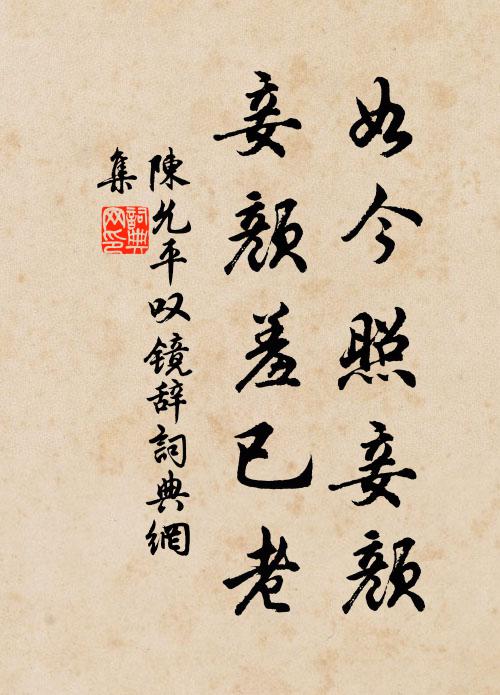 如今照妾颜
妾颜羞已老
陳允平叹镜辞詞典網
集
詞典网印